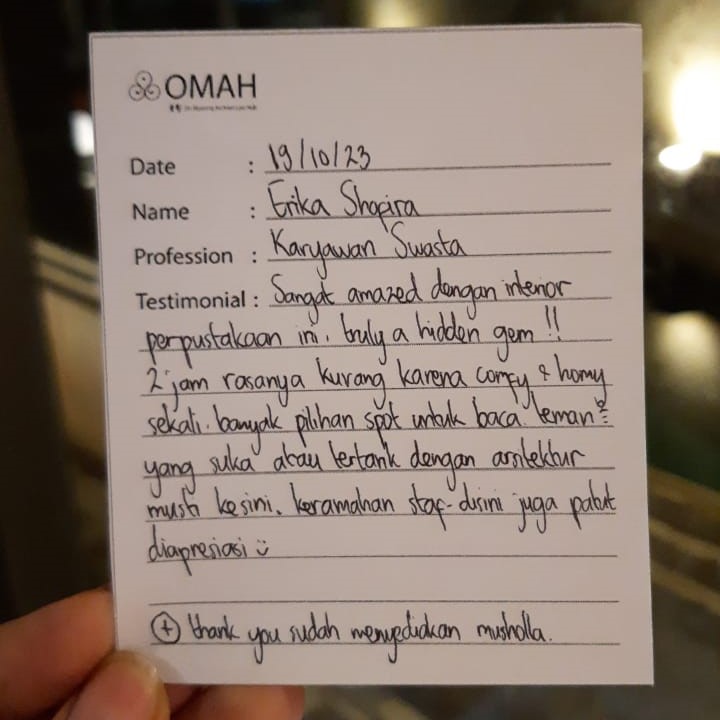 OMAH
Date : 19/10/23
Name : Erika Shapira
Profession : Karyawan Swasta
Testimonial : Sangat amazed dengan interior
perpustakaan ini. truly a hidden gem !!
2 jam rasanya kurang karena comfy & homy
sekali. banyak pilihan spot untuk baca. teman²
yang suka atau tertarik dengan arsitektur
musti kesini. keramahan staf-disini juga patut
diapresiasi
+ thank you sudah menyediakan musholla.